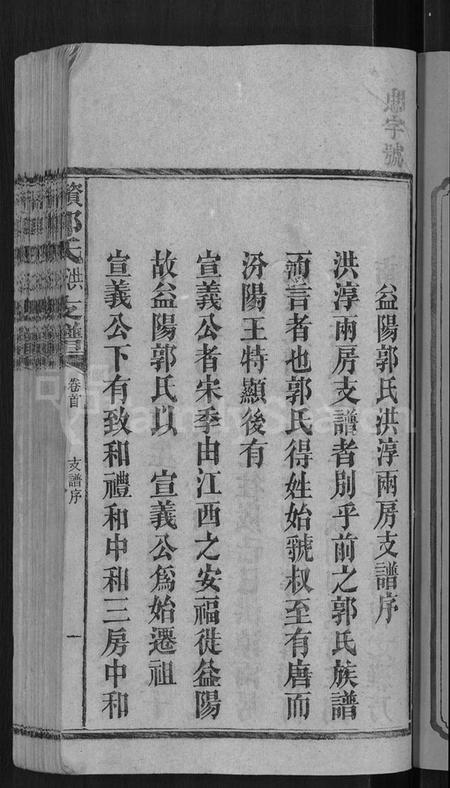 忠字號
益陽郭氏洪淳兩房支譜序
洪淳兩房支譜者別乎前之郭氏族譜
而言者也郭氏得姓始虢叔至有唐而
汾陽王特顯後有
宣義公者宋季由江西之安福徙益陽
故益陽郭氏以 宣義公爲始遷祖
宣義公下有致和禮和中和三房中和
資郭氏洪支譜
卷首
支譜序
一